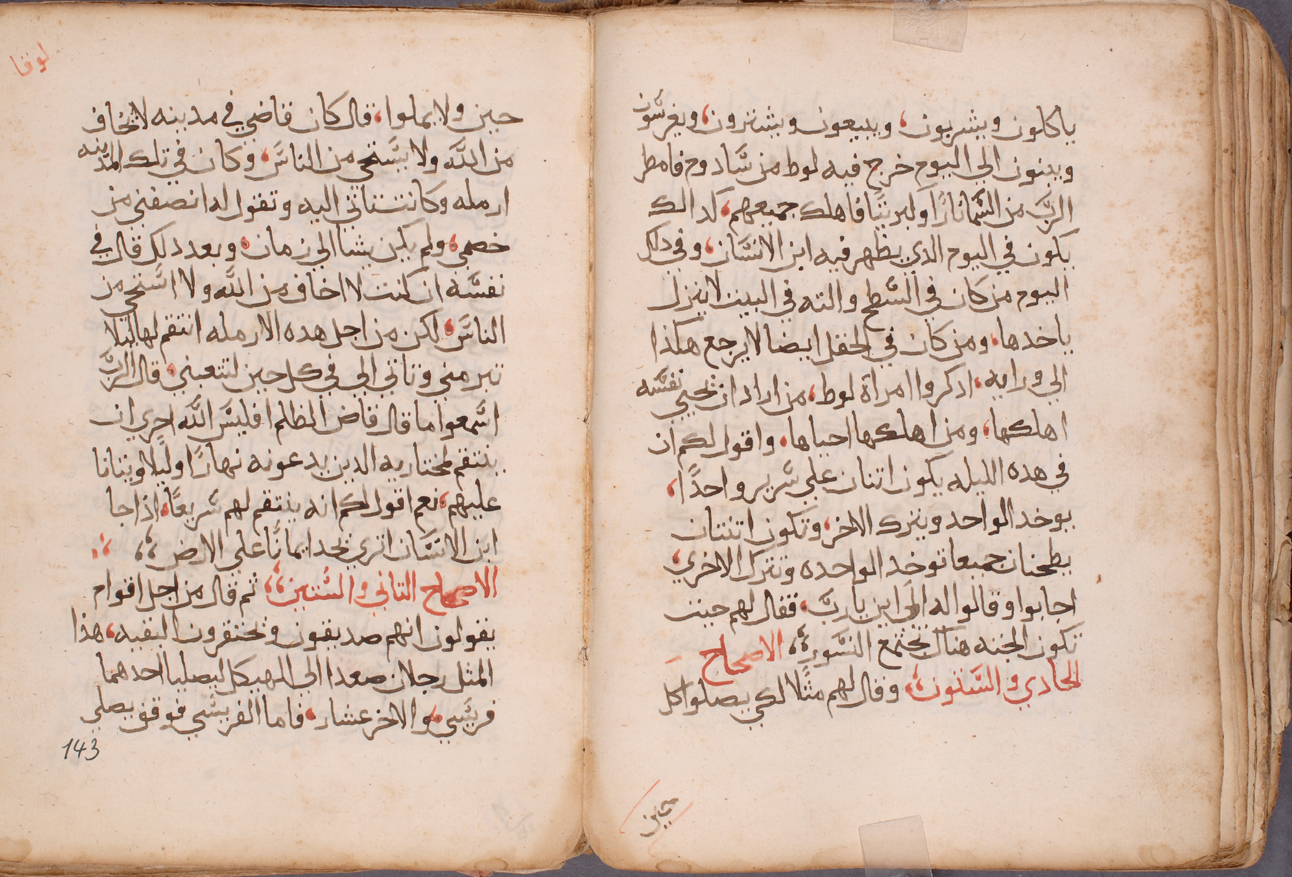 ياكلون ويشربون، ويبيعون ويشترون، ويغرسون
ويبنون الي اليوم خرج فيه لوط من سادوم فامطر
الرب من السما نارًا وكبريتًا فاهلك جميعهم، كدالك
يكون في اليوم الدي يظهر فيه ابن الانسان، وفي دلك
اليوم من كان في السطح والته في البيت لا ينزل
ياخدها، ومن كان في الحقل ايضا لا يرجع هكذا
الي ورايه، ادكروا امراة لوط، من اراد ان يحيي نفسه
اهلكها، ومن اهلكها احياها، واقول لكم ان
في هده الليله يكون اتنان علي سرير واحدًا،
يوخد الواحد ويترك الاخر، وتكون اتنتان
يطحنان جميعا توخد الواحده وتترك الاخري،
اجابوا وقالوا له الي اين يارب، فقال لهم حيت
تكون الجته هناك تجتمع النسور، الاصحاح
الحادي والستون، وقال لهم متلًا لكي يصلوا كل
حين
لوقا
حين ولا يملوا، قال كان قاضي في مدينه لا يخاف
من الله ولا يستحي من الناس، وكان في تلك المدينه
ارمله وكانت تاتي اليه وتقول له انصفني من
خصمي، ولم يكن يشا الي زمان، وبعد دلك قال في
نفسه ان كنت لا اخاف من الله ولا استحي من
الناس، لكن من اجل هده الارمله انتقم لها ليلا
تبرمني وتاتي الي في كل حين لتتعبني، قال الرب
اسمعوا ما قال قاض الظلم افليس الله احري ان
ينتقم لمختاريه الدين يدعونه نهارًا وليلًا ويتانا
عليهم، نعم اقول لكم انه ينتقم لهم سريعًا، اذا جا
ابن الانسان اتري يجد ايمانًا علي الارض،
الاصحاح التاني والستين، تم قال من اجل اقوام
يقولون انهم صديقون ويحتقرون البقيه، هذا
المتل رجلان صعدا الي الهيكل ليصليا احدهما
فريسي، والاخر عشار، فاما الفريسي فوقف يصلي
143